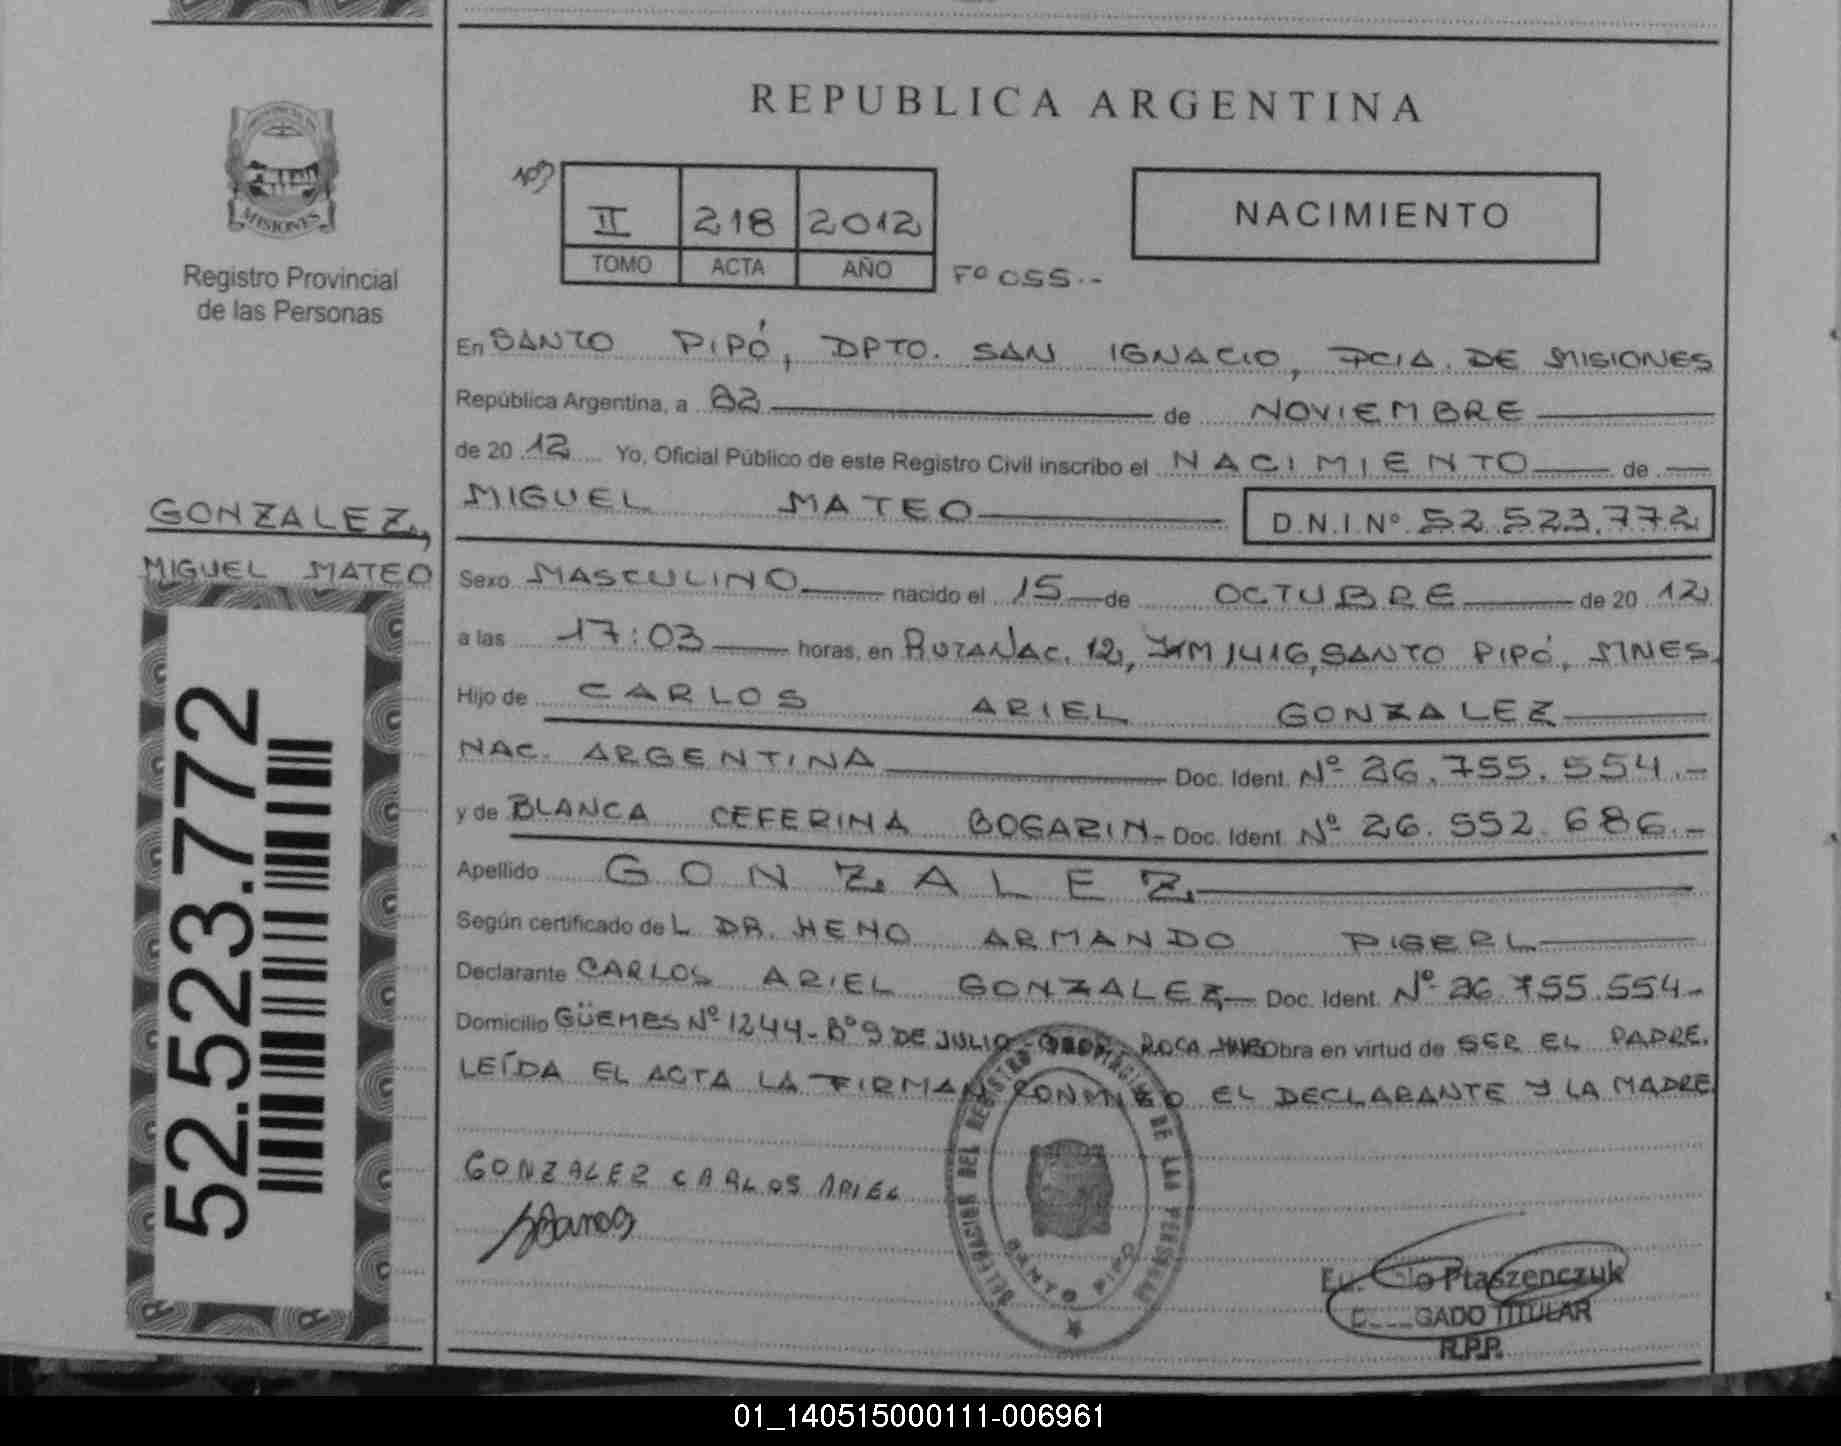 REPUBLICA ARGENTINA
MISIONES
Registro Provincial
de las Personas
103
II 218 2012
TOMO ACTA AÑO
Fº 055.-
NACIMIENTO
En SANTO PIPÓ, DPTO. SAN IGNACIO, PCIA. DE MISIONES
República Argentina, a 22 de NOVIEMBRE
de 20 12 Yo, Oficial Público de este Registro Civil inscribo el NACIMIENTO de
MIGUEL MATEO D.N.I.Nº 52.523.772
GONZALEZ,
MIGUEL MATEO
52.523.772
Sexo MASCULINO nacido el 15 de OCTUBRE de 20 12
a las 17:03 horas, en RUTA NAC. 12, KM 1416, SANTO PIPÓ, MNES.
Hijo de CARLOS ARIEL GONZALEZ
NAC. ARGENTINA Doc. Ident. Nº 26.755.554.-
y de BLANCA CEFERINA BOGARIN- Doc. Ident. Nº 26.552.686.-
Apellido GONZALEZ
Según certificado de L DR. HENO ARMANDO PIGERL
Declarante CARLOS ARIEL GONZALEZ Doc. Ident. Nº 26.755.554-
Domicilio GÜEMES Nº 1244-Bº 9 DE JULIO ROCA Obra en virtud de SER EL PADRE.
LEÍDA EL ACTA LA FIRMAN CONMIGO EL DECLARANTE Y LA MADRE
GONZALEZ CARLOS ARIEL
DELEGACION DEL REGISTRO PROVINCIAL DE LAS PERSONAS
SANTO PIPO
Ptaszenczuk
TITULAR
R.P.P.
01_140515000111-006961